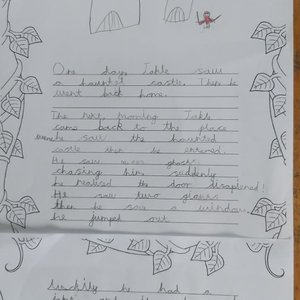 One day, Jake saw
a haunted castle. Then he
went back home.
The next morning Jake
came back to the place
where he saw the haunted
castle then he entered.
He saw mean ghosts
chasing him suddenly
he realised the door disapiened!
He saw two giants
then he saw a window.
he jumped out
Luckily he had a